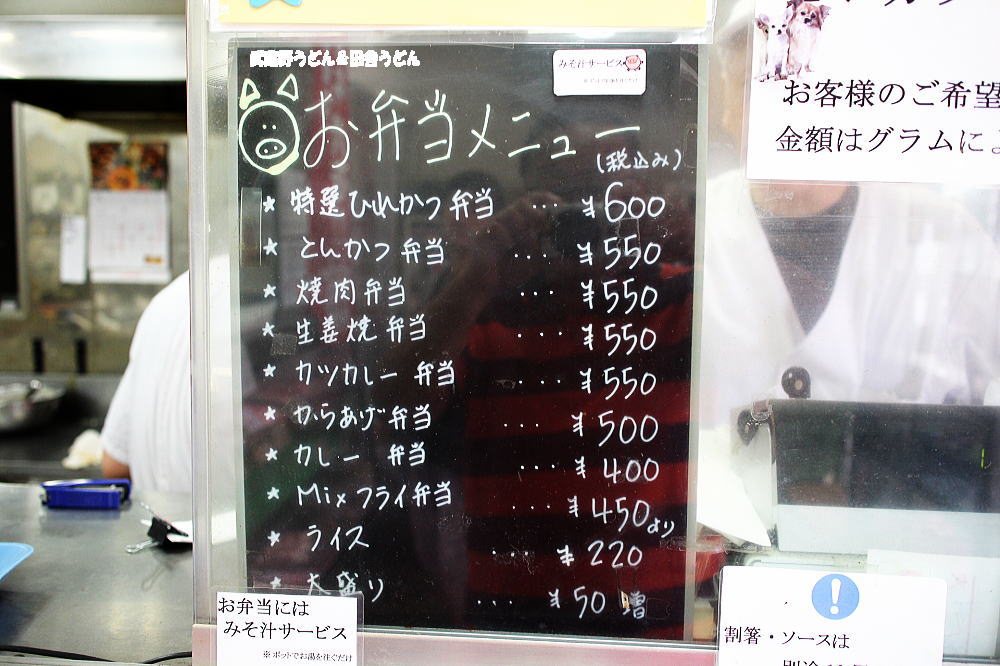 みそ汁サービス
お弁当メニュー
(税込み)
★ 特選ひれかつ弁当 … ¥600
★ とんかつ弁当 … ¥550
★ 焼肉弁当 … ¥550
★ 生姜焼弁当 … ¥550
★ カツカレー弁当 … ¥550
★ からあげ弁当 … ¥500
★ カレー弁当 … ¥400
★ Mixフライ弁当 … ¥450より
★ ライス … ¥220
★ 大盛り … ¥50増
お弁当には
みそ汁サービス
※ポットでお湯を注ぐだけ
お客様のご希望
金額はグラムによ
割箸・ソースは